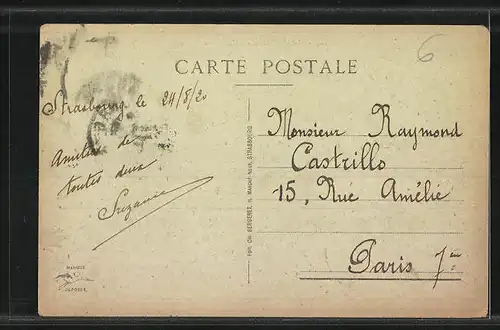 6
CARTE POSTALE
Strasbourg le 24/8/20
Amitiés de
toutes deux
Suzanne
Monsieur Raymond
Castrillo
15, Rue Amélie
Paris 7e
MARQUE